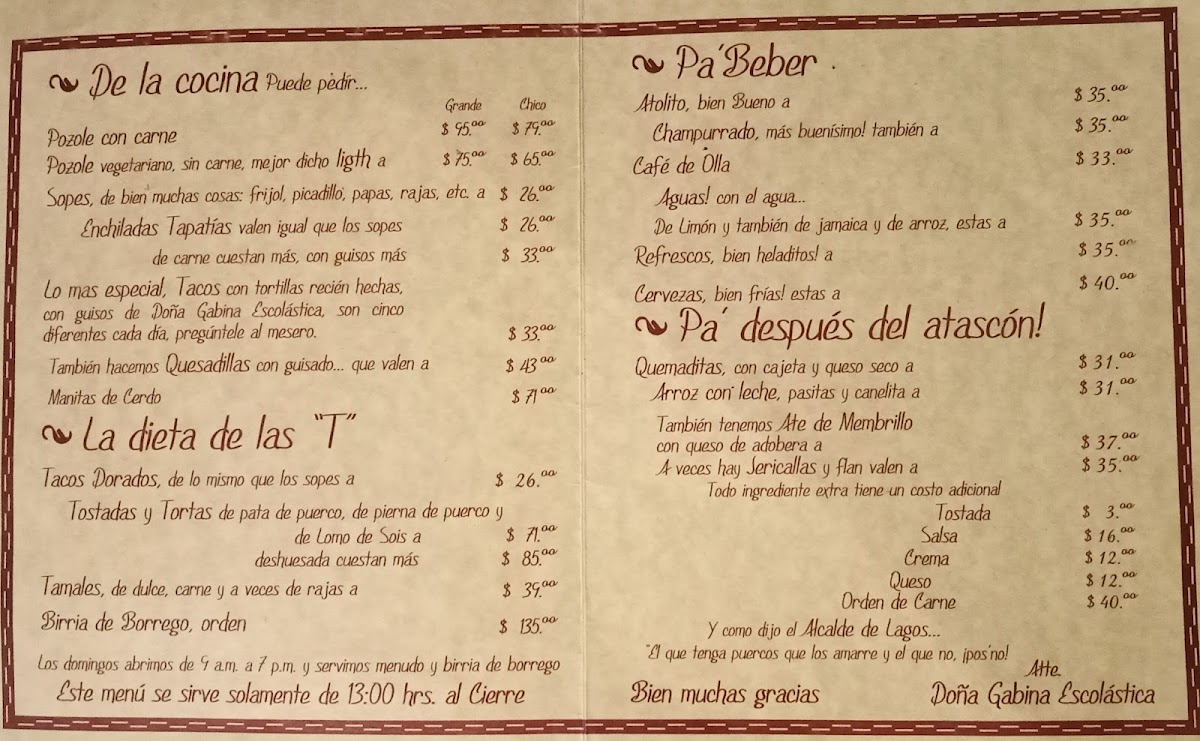 De la cocina Puede pèdir...
Grande Chico
Pozole con carne $ 95.00 $ 79.00
Pozole vegetariano, sin carne, mejor dicho ligth a $ 75.00 $ 65.00
Sopes, de bien muchas cosas: frijol, picadillo, papas, rajas, etc. a $ 26.00
Enchiladas Tapatías valen igual que los sopes $ 26.00
de carne cuestan más, con guisos más $ 33.00
Lo mas especial, Tacos con tortillas recién hechas,
con guisos de Doña Gabina Escolástica, son cinco
diferentes cada día, pregúntele al mesero. $ 33.00
También hacemos Quesadillas con guisado... que valen a $ 43.00
Manitas de Cerdo $ 71.00
La dieta de las "T"
Tacos Dorados, de lo mismo que los sopes a $ 26.00
Tostadas y Tortas de pata de puerco, de pierna de puerco y
de Lomo de Sois a $ 71.00
deshuesada cuestan más $ 85.00
Tamales, de dulce, carne y a veces de rajas a $ 39.00
Birria de Borrego, orden $ 135.00
Los domingos abrimos de 9 a.m. a 7 p.m. y servimos menudo y birria de borrego
Este menú se sirve solamente de 13:00 hrs. al Cierre
Pa´Beber
Atolito, bien Bueno a $ 35.00
Champurrado, más buenísimo! también a $ 35.00
Café de Olla $ 33.00
Aguas! con el agua...
De Limón y también de jamaica y de arroz, estas a $ 35.00
Refrescos, bien heladitos! a $ 35.00
Cervezas, bien frías! estas a $ 40.00
Pa´ después del atascón!
Quemaditas, con cajeta y queso seco a $ 31.00
Arroz con leche, pasitas y canelita a $ 31.00
También tenemos Ate de Membrillo
con queso de adobera a $ 37.00
A veces hay Jericallas y flan valen a $ 35.00
Todo ingrediente extra tiene un costo adicional
Tostada $ 3.00
Salsa $ 16.00
Crema $ 12.00
Queso $ 12.00
Orden de Carne $ 40.00
Y como dijo el Alcalde de Lagos...
"El que tenga puercos que los amarre y el que no, ¡pos'no!
Atte.
Bien muchas gracias Doña Gabina Escolástica